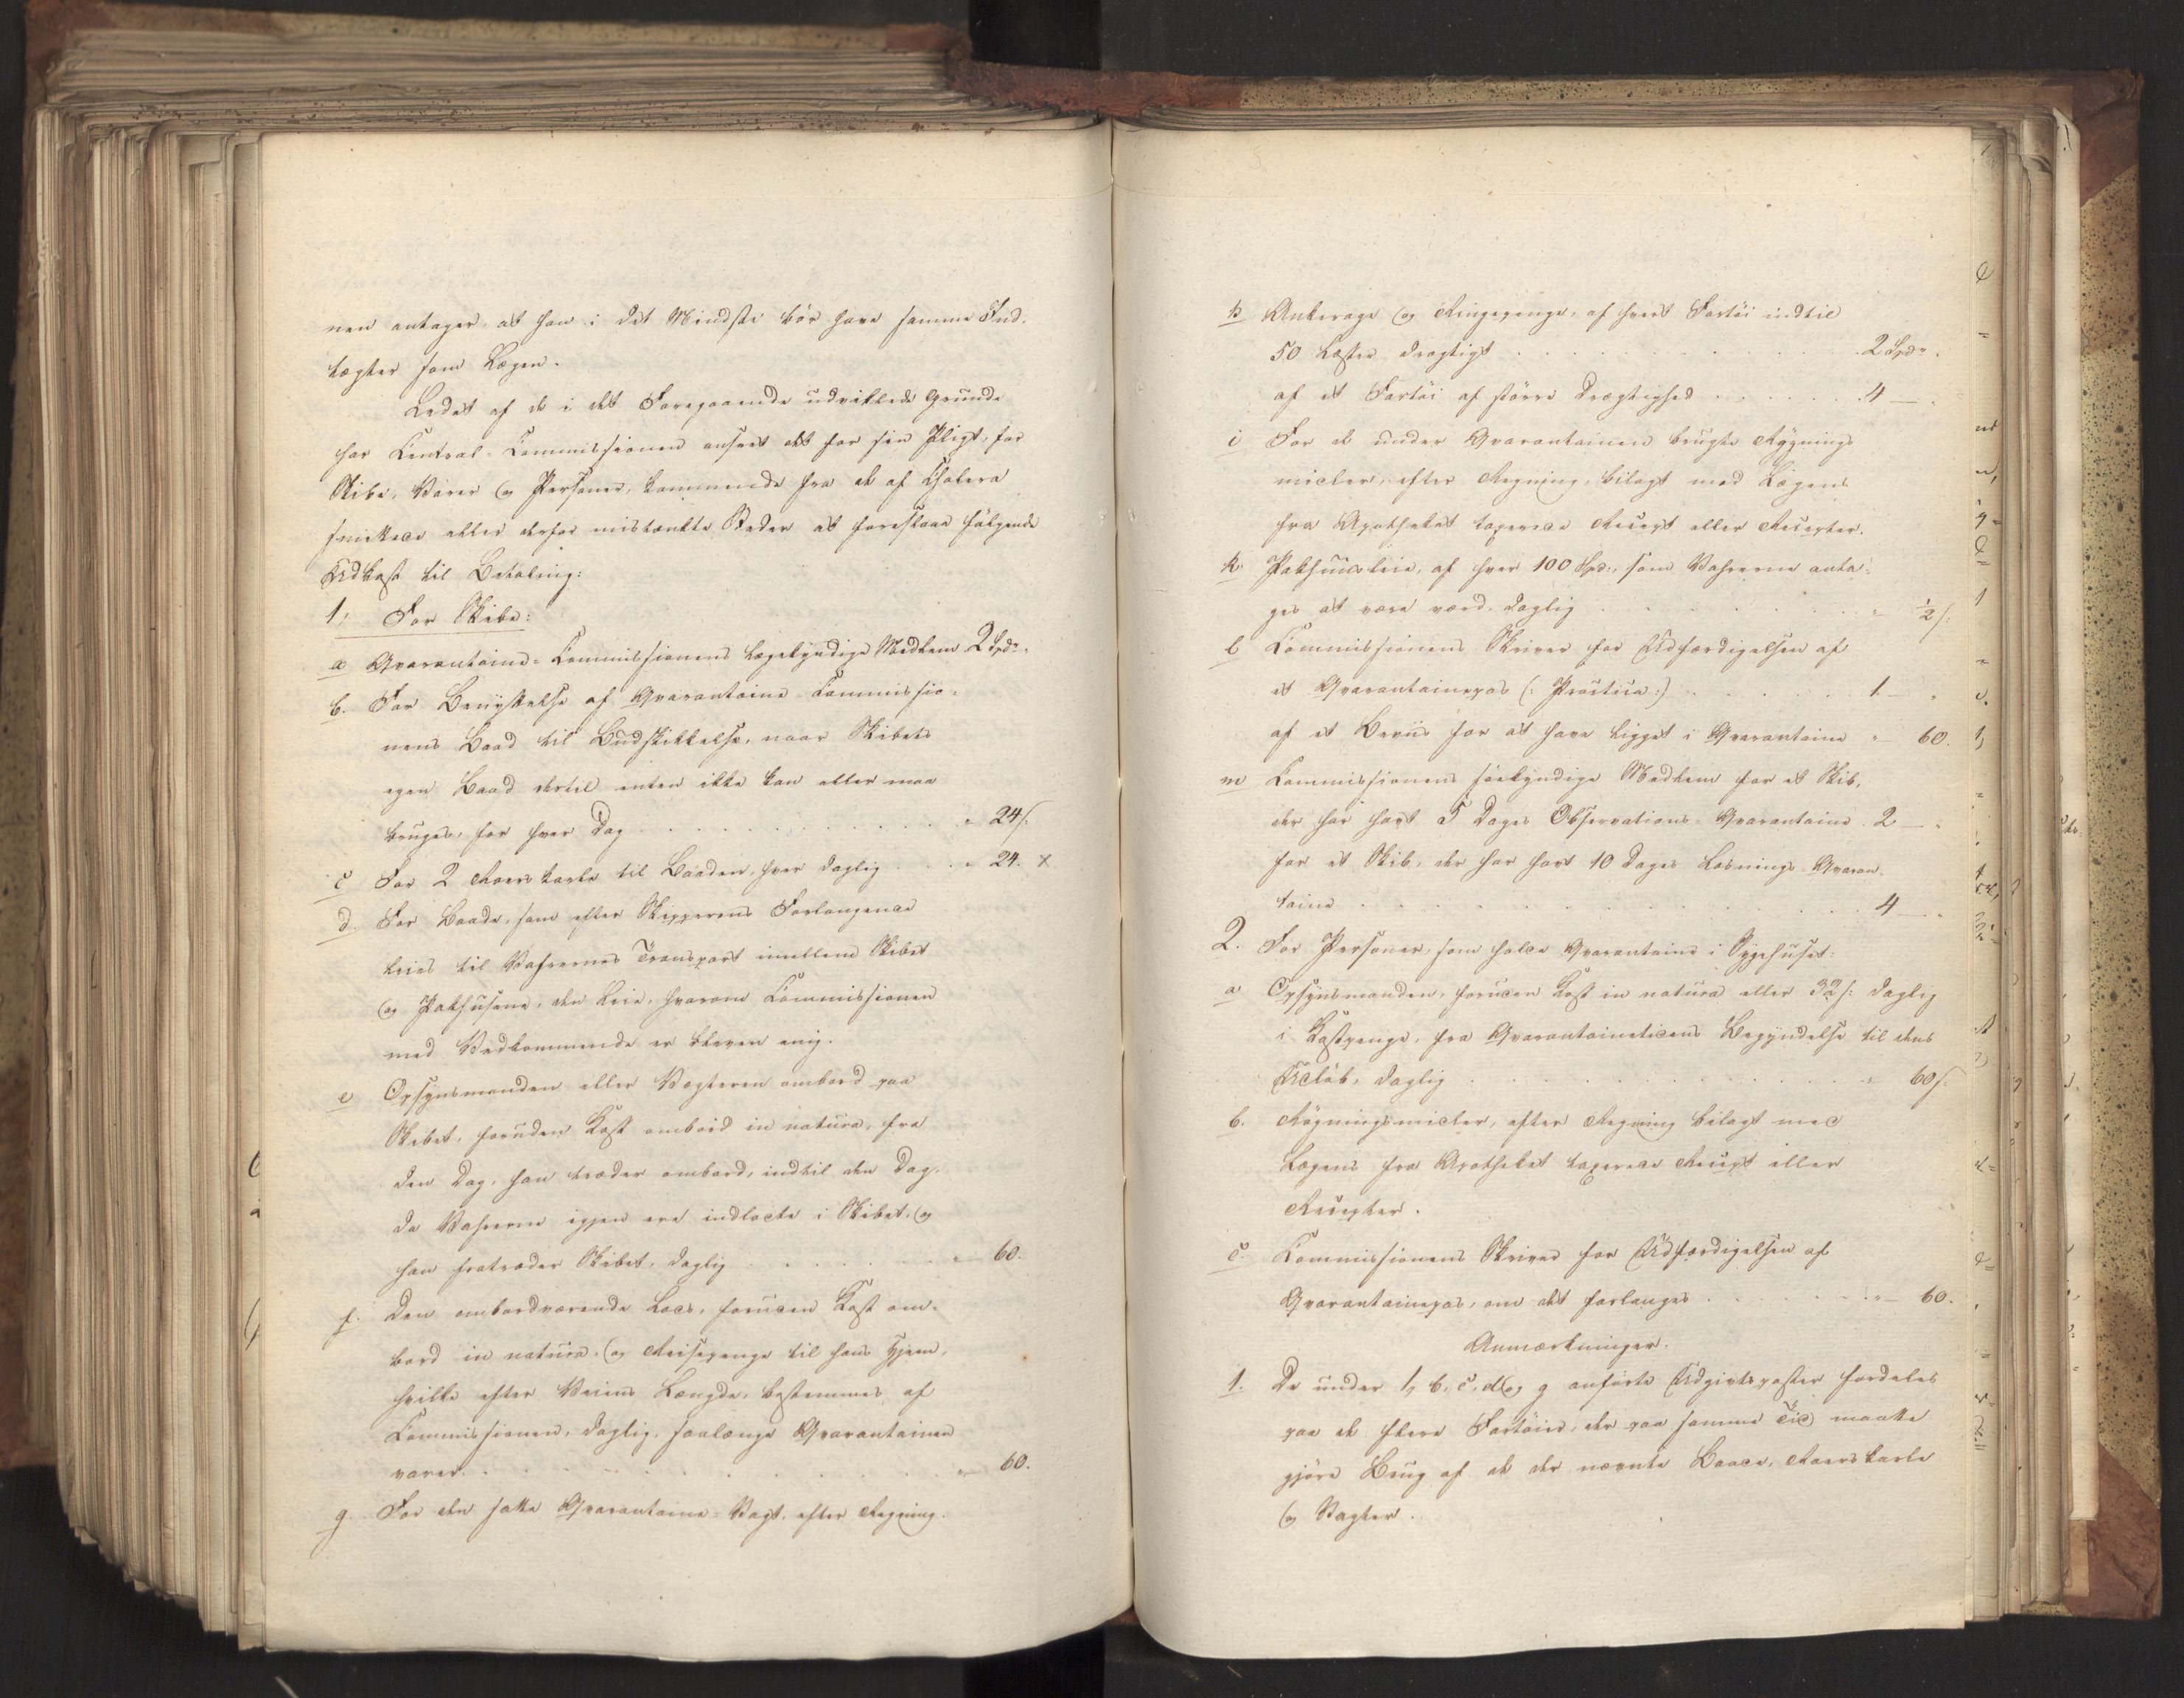 nen antager, at han i det Mindste bör have samme Ind-
tægter som Lægen.
Ledet af de i det Foregaaende udviklede Grunde
har Central-Commissionen anseet det for sin Pligt, for
Skibe, Varer og Personer, kommende fra de af Cholera
smittede eller derfor mistænkte Steder at foreslaae fölgende
Udkast til Betaling:
1, For Skibe:
a Qvarantaine-Commissionens lægekyndige Medlem 2 Spdr.
b. For Benyttelse af Qvarantaine-Commissio-
nens Baad til Budskikkelse, naar Skibets
egen Baad dertil enten ikke kan eller maa
bruges, for hver Dag . . . " 24 s:
c For 2 Roerskarle til Baaden, hver daglig . . " 24. x
d. For Baade, som efter Skipperens Forlangende
leies til Vahrernes Transport imellem Skibet
og Pakhusene, den Leie, hvorom Commissionen
med Vedkommende er bleven enig.
e Opsynsmanden eller Vægteren ombord paa
Skibet, foruden Kost ombord in natura, fra
den Dag, han træder ombord, indtil den Dag,
da Vahrerne igjen ere indladte i Skibet, og
han fratræder Skibet, daglig . . . " 60.
f. Den ombordværende Lods, foruden Kost om-
bord in natura, og Reisepenge til hans Hjem,
hvilke efter Veiens Længde, bestemmes af
Commissionen, daglig, saalænge Qvarantainen
varer. . . . " 60.
g. For den satte Qvarantaine-Vagt, efter Regning.
h Ankerage og Ringepenge, af hvert Fartöi indtil
50 Læster drægtigt . . . 2 Spdr.
af et Fartöi af större Drægtighed . . . 4 —
i For de under Qvarantainen brugte Rygnings
midler, efter Regning, bilagt med Lægens
fra Apotheket taxerede Recept eller Recepter.
k. Pakhuusleie, af hver 100 Spd:, som Vahrerne anta-
ges at være værd, daglig . . . " ½ s:
l Commissionens Skriver for Udfærdigelsen af
et Qvarantainepas (: Practica :) . . . 1 — "
af et Beviis for at have ligget i Qvarantaine " 60.
m Commissionens söekyndige Medlem for et Skib,
der har havt 5 Dages Observations-Qvarantaine. 2 —
for et Skib, der har havt 10 Dages Losnings-Qvaran-
taine . . . 4 —
2. For Personer, som holde Qvarantaine i Sygehuset:
a Opsynsmanden, foruden Kost in natura eller 32 s: daglig
i Kostpenge, fra Qvarantainetidens Begyndelse til dens
Udlöb, daglig . . . " 60 s:
b. Rögningsmidler, efter Regning bilagt med
Lægens fra Apotheket taxerede Recept eller
Recepter.
c. Commissionens Skriver for Udfærdigelsen af
Qvarantainepas, om det forlanges . . . " 60.
Anmærkninger.
1. De under 1, b, c, d og g anförte Udgiftsposter fordeles
paa de flere Fartöier, der paa samme Tid maatte
gjöre Brug af de der nævnte Baade, Roerskarle
og Vagter.